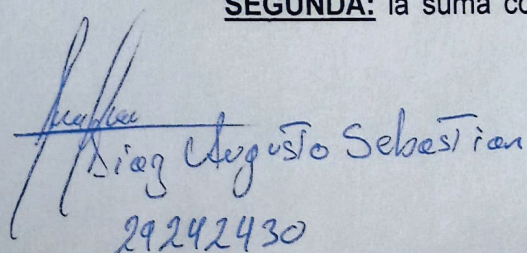 SEGUNDA: la suma co
Diaz Augusto Sebastian
29242430